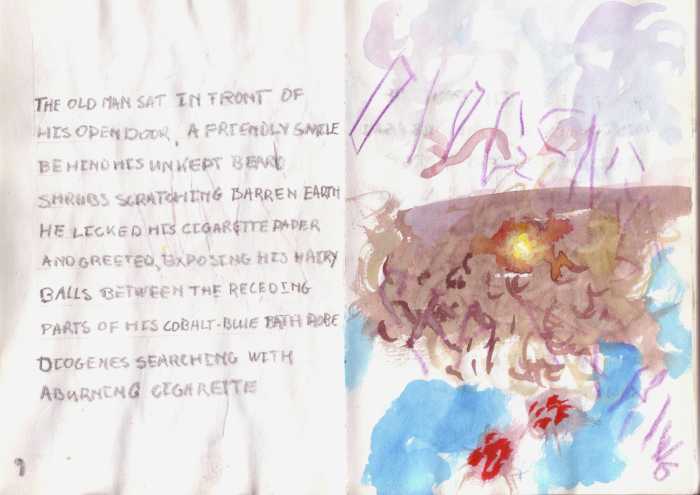 THE OLD MAN SAT IN FRONT OF
HIS OPEN DOOR, A FRIENDLY SMILE
BEHIND HIS UNKEPT BEARD
SHRUBS SCRATCHING BARREN EARTH
HE LICKED HIS CIGARETTE PAPER
AND GREETED, EXPOSING HIS HAIRY
BALLS BETWEEN THE RECEDING
PARTS OF HIS COBALT-BLUE BATH ROBE
DIOGENES SEARCHING WITH
A BURNING CIGARETTE
9